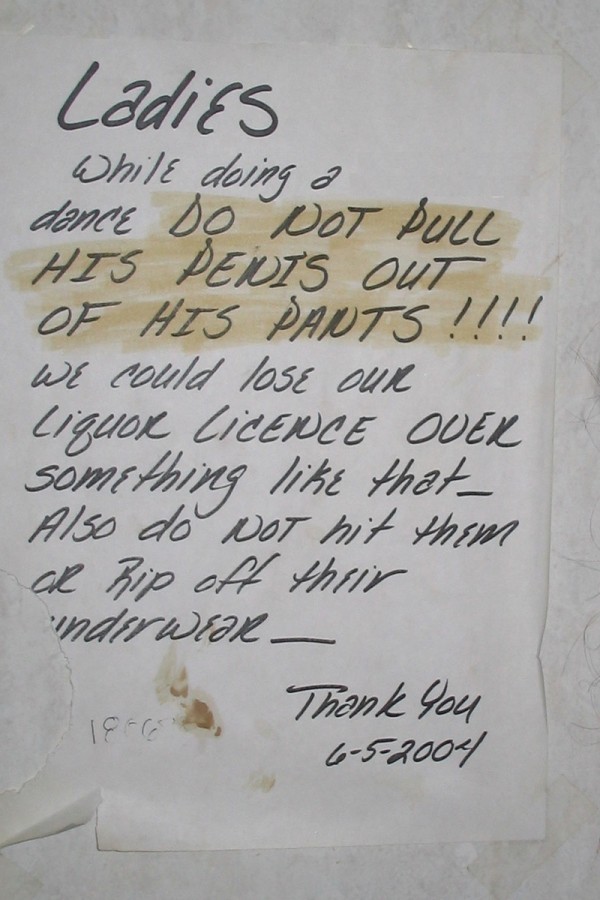 Ladies
While doing a
dance DO NOT PULL
HIS PENIS OUT
OF HIS PANTS!!!!
we could lose our
Liquor Licence OVER
something like that_
Also do NOT hit them
or Rip off their
underwear__
Thank You
6-5-2004